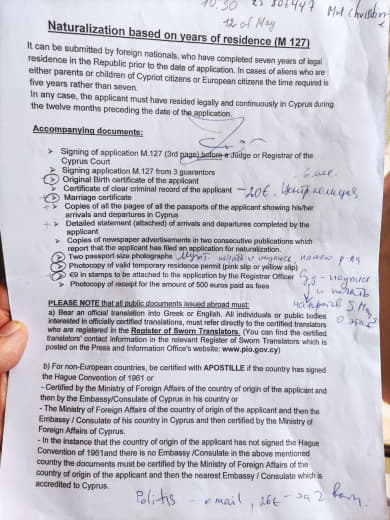 10.30
12 of May
Naturalization based on years of residence (M 127)
It can be submitted by foreign nationals, who have completed seven years of legal
residence in the Republic prior to the date of application. In cases of aliens who are
either parents or children of Cypriot citizens or European citizens the time required is
five years rather than seven.
In any case, the applicant must have resided legally and continuously in Cyprus during
the twelve months preceding the date of the application.
Accompanying documents:
➢ Signing of application M.127 (3rd page) before a Judge or Registrar of the
Cyprus Court
➢ Signing application M.127 from 3 guarantors
➢ Original Birth certificate of the applicant
➢ Certificate of clear criminal record of the applicant – 20€.
➢ Marriage certificate
➢ Copies of all the pages of all the passports of the applicant showing his/her
arrivals and departures in Cyprus
➢ Detailed statement (attached) of arrivals and departures completed by the
applicant
➢ Copies of newspaper advertisements in two consecutive publications which
report that the applicant has filed an application for naturalization.
➢ Two passport size photographs
➢ Photocopy of valid temporary residence permit (pink slip or yellow slip)
➢ €9 in stamps to be attached to the application by the Registrar Officer
➢ Photocopy of receipt for the amount of 500 euros paid as fees
PLEASE NOTE that all public documents issued abroad must:
a) Bear an official translation into Greek or English. All individuals or public bodies
interested in officially certified translations, must refer directly to the certified translators
who are registered in the Register of Sworn Translators. (You can find the certified
translators' contact information in the relevant Register of Sworn Translators which is
posted on the Press and Information Office's website: www.pio.gov.cy)
b) For non-European countries, be certified with APOSTILLE if the country has signed
the Hague Convention of 1961 or
- Certified by the Ministry of Foreign Affairs of the country of origin of the applicant and
then by the Embassy/Consulate of Cyprus in his country or
- The Ministry of Foreign Affairs of the country of origin of the applicant and then the
Embassy / Consulate of his country in Cyprus and then certified by the Ministry of
Foreign Affairs of Cyprus.
- In the instance that the country of origin of the applicant has not signed the Hague
Convention of 1961and there is no Embassy /Consulate in the above mentioned
country the documents must be certified by the Ministry of Foreign Affairs of the
country of origin of the applicant and then the nearest Embassy / Consulate which is
accredited to Cyprus.
Politis - email, 26€ - за 2